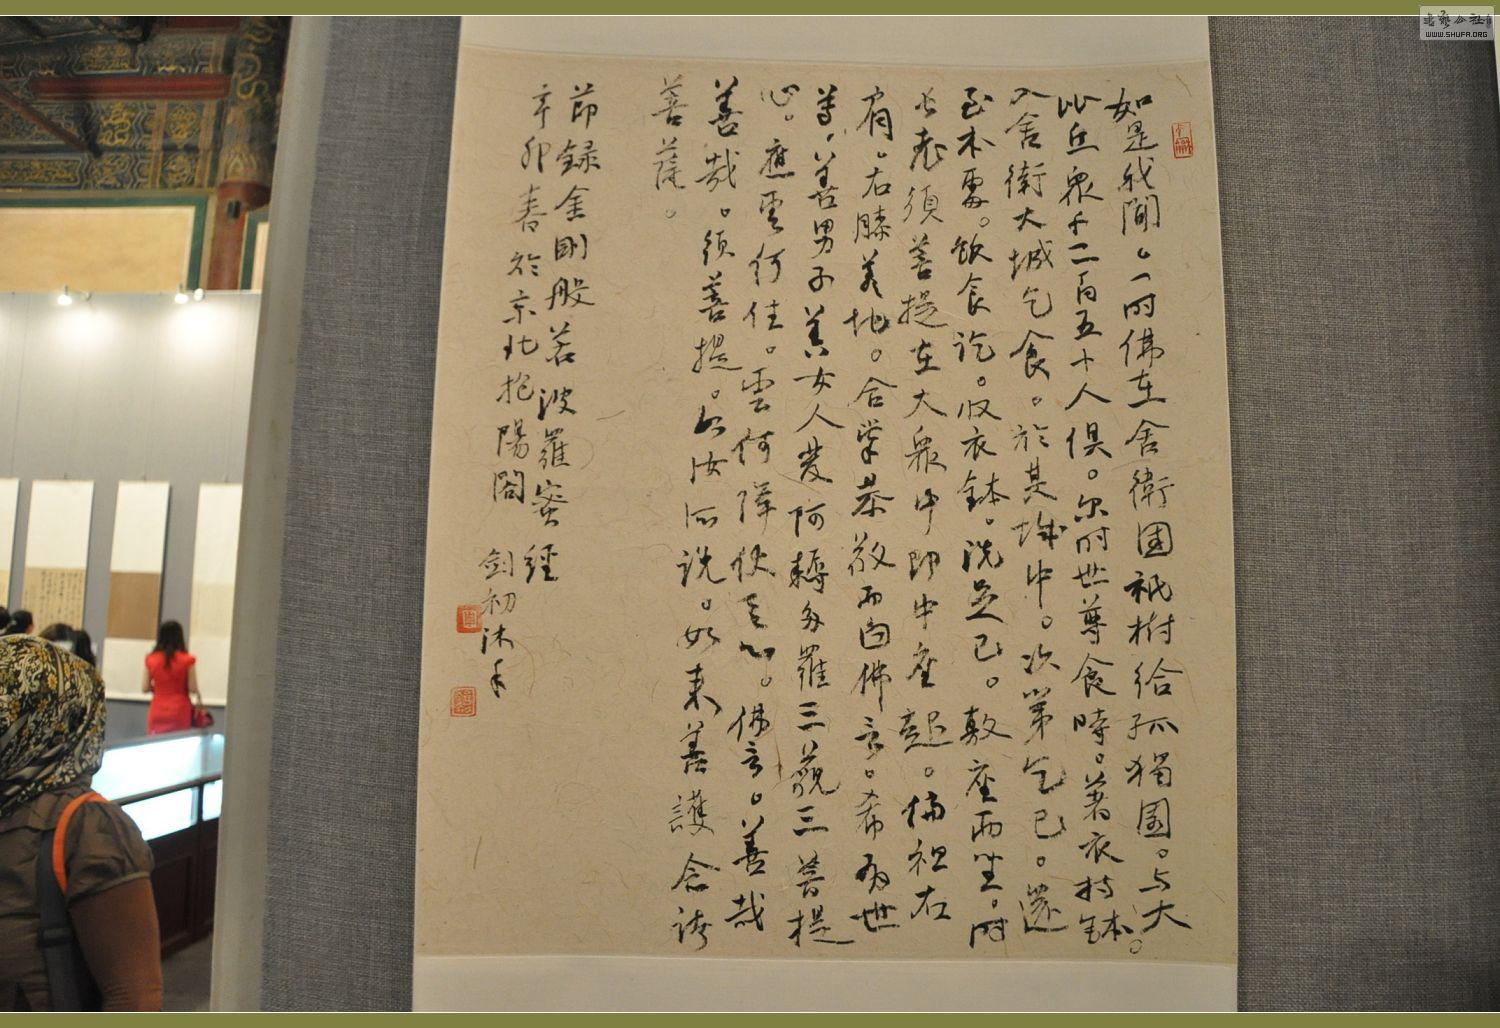 如是我聞。一時佛在舍衛國祇樹給孤獨園。与大
比丘眾千二百五十人俱。尔時世尊食時。著衣持鉢。
入舍衛大城乞食。於其城中。次第乞已。還
至本處。飯食訖。收衣鉢。洗足已。敷座而坐。時
長老須菩提在大眾中即中座起。偏袒右
肩。右膝着地。合掌恭敬而白佛言。希有世
尊。善男子善女人發阿耨多羅三藐三菩提
心。應云何住。云何降伏其心。佛言。善哉
善哉。須菩提。如汝所說。如來善護念諸
菩薩。
節録金剛般若波羅蜜經
辛卯春於京北抱陽閣 劍初沐手
WWW.SHUFA.ORG